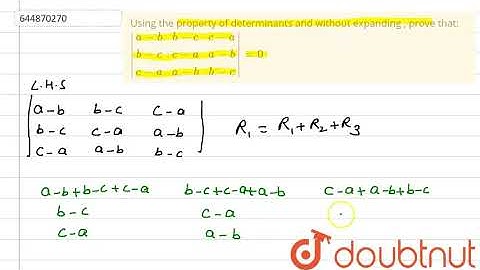 644870270
Using the property of determinants and without expanding , prove that:
a − b b − c c − a
b − c c − a a − b = 0
c − a a − b b − c
L.H.S
a-b b-c c-a
b-c c-a a-b
c-a a-b b-c
R₁ = R₁ + R₂ + R₃
a-b+b-c+c-a b-c+c-a+a-b c-a+a-b+b-c
b-c c-a
c-a a-b
doubtnut